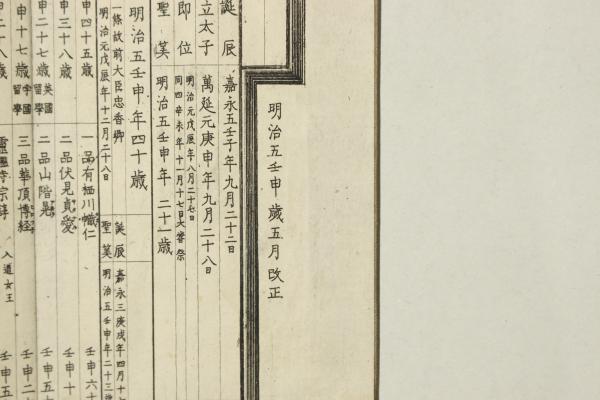 明治五壬申歳五月改正
誕辰 嘉永五壬子年九月二十二日
立太子 萬延元庚申年九月二十八日
即位 明治元戊辰年八月二十七日
同四辛未年十一月十七日大嘗祭
聖算 明治五壬申年 二十一歳
明治五壬申年四十歳
一條故前大臣忠香卿
明治元戊辰年十二月二十八日
誕辰 嘉永三庚戌年四月十七
聖算 明治五壬申年二十三歳
申四十五歳 一品有栖川幟仁 壬申六十
申三十八歳 二品伏見貞愛 壬申十
申二十七歳 英國留學 二品山階晃 壬申五十
申十七歳 孛國留學 三品華頂博經 壬申二十
申二十八歳 入道女王 壬申五